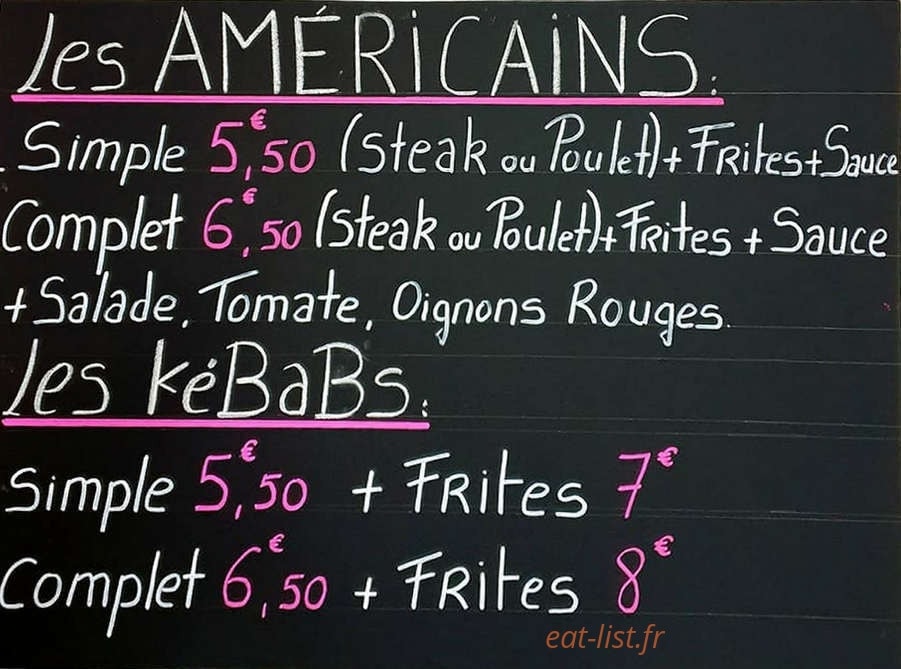 Les AMÉRiCAiNS:
Simple 5€,50 (Steak ou Poulet)+Frites+Sauce
Complet 6€,50 (Steak ou Poulet)+Frites + Sauce
+ Salade, Tomate, Oignons Rouges.
Les KéBaBs:
Simple 5€,50 + Frites 7€
Complet 6€,50 + Frites 8€
eat-list.fr